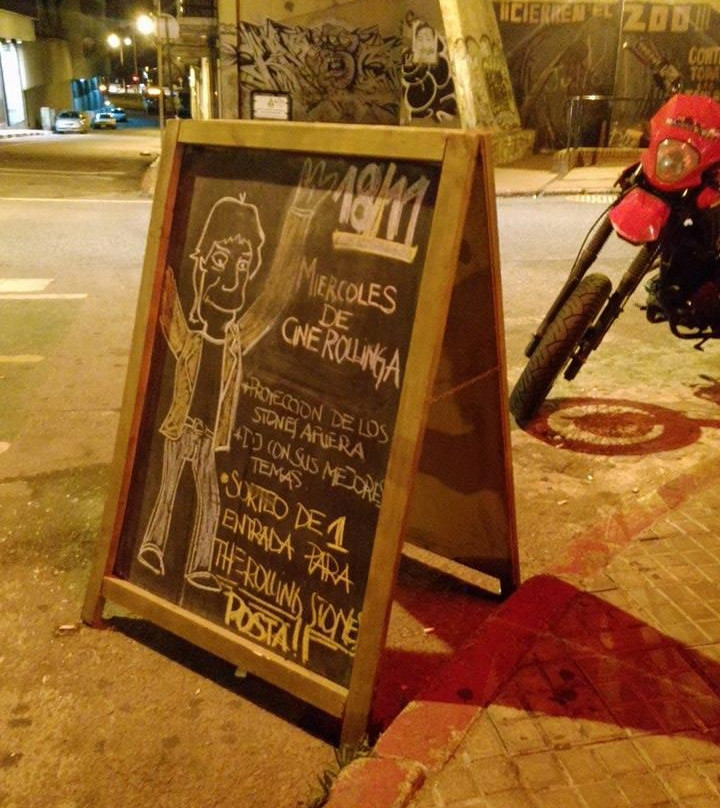 ¡¡CIERREN EL ZOO!!!
18/11
MIERCOLES
DE
CINE ROLLINGA
+PROYECCION DE LOS
STONES AFUERA
+DJ CON SUS MEJORES
TEMAS
•SORTEO DE 1
ENTRADA PARA
THE ROLLING STONES
POSTA!!